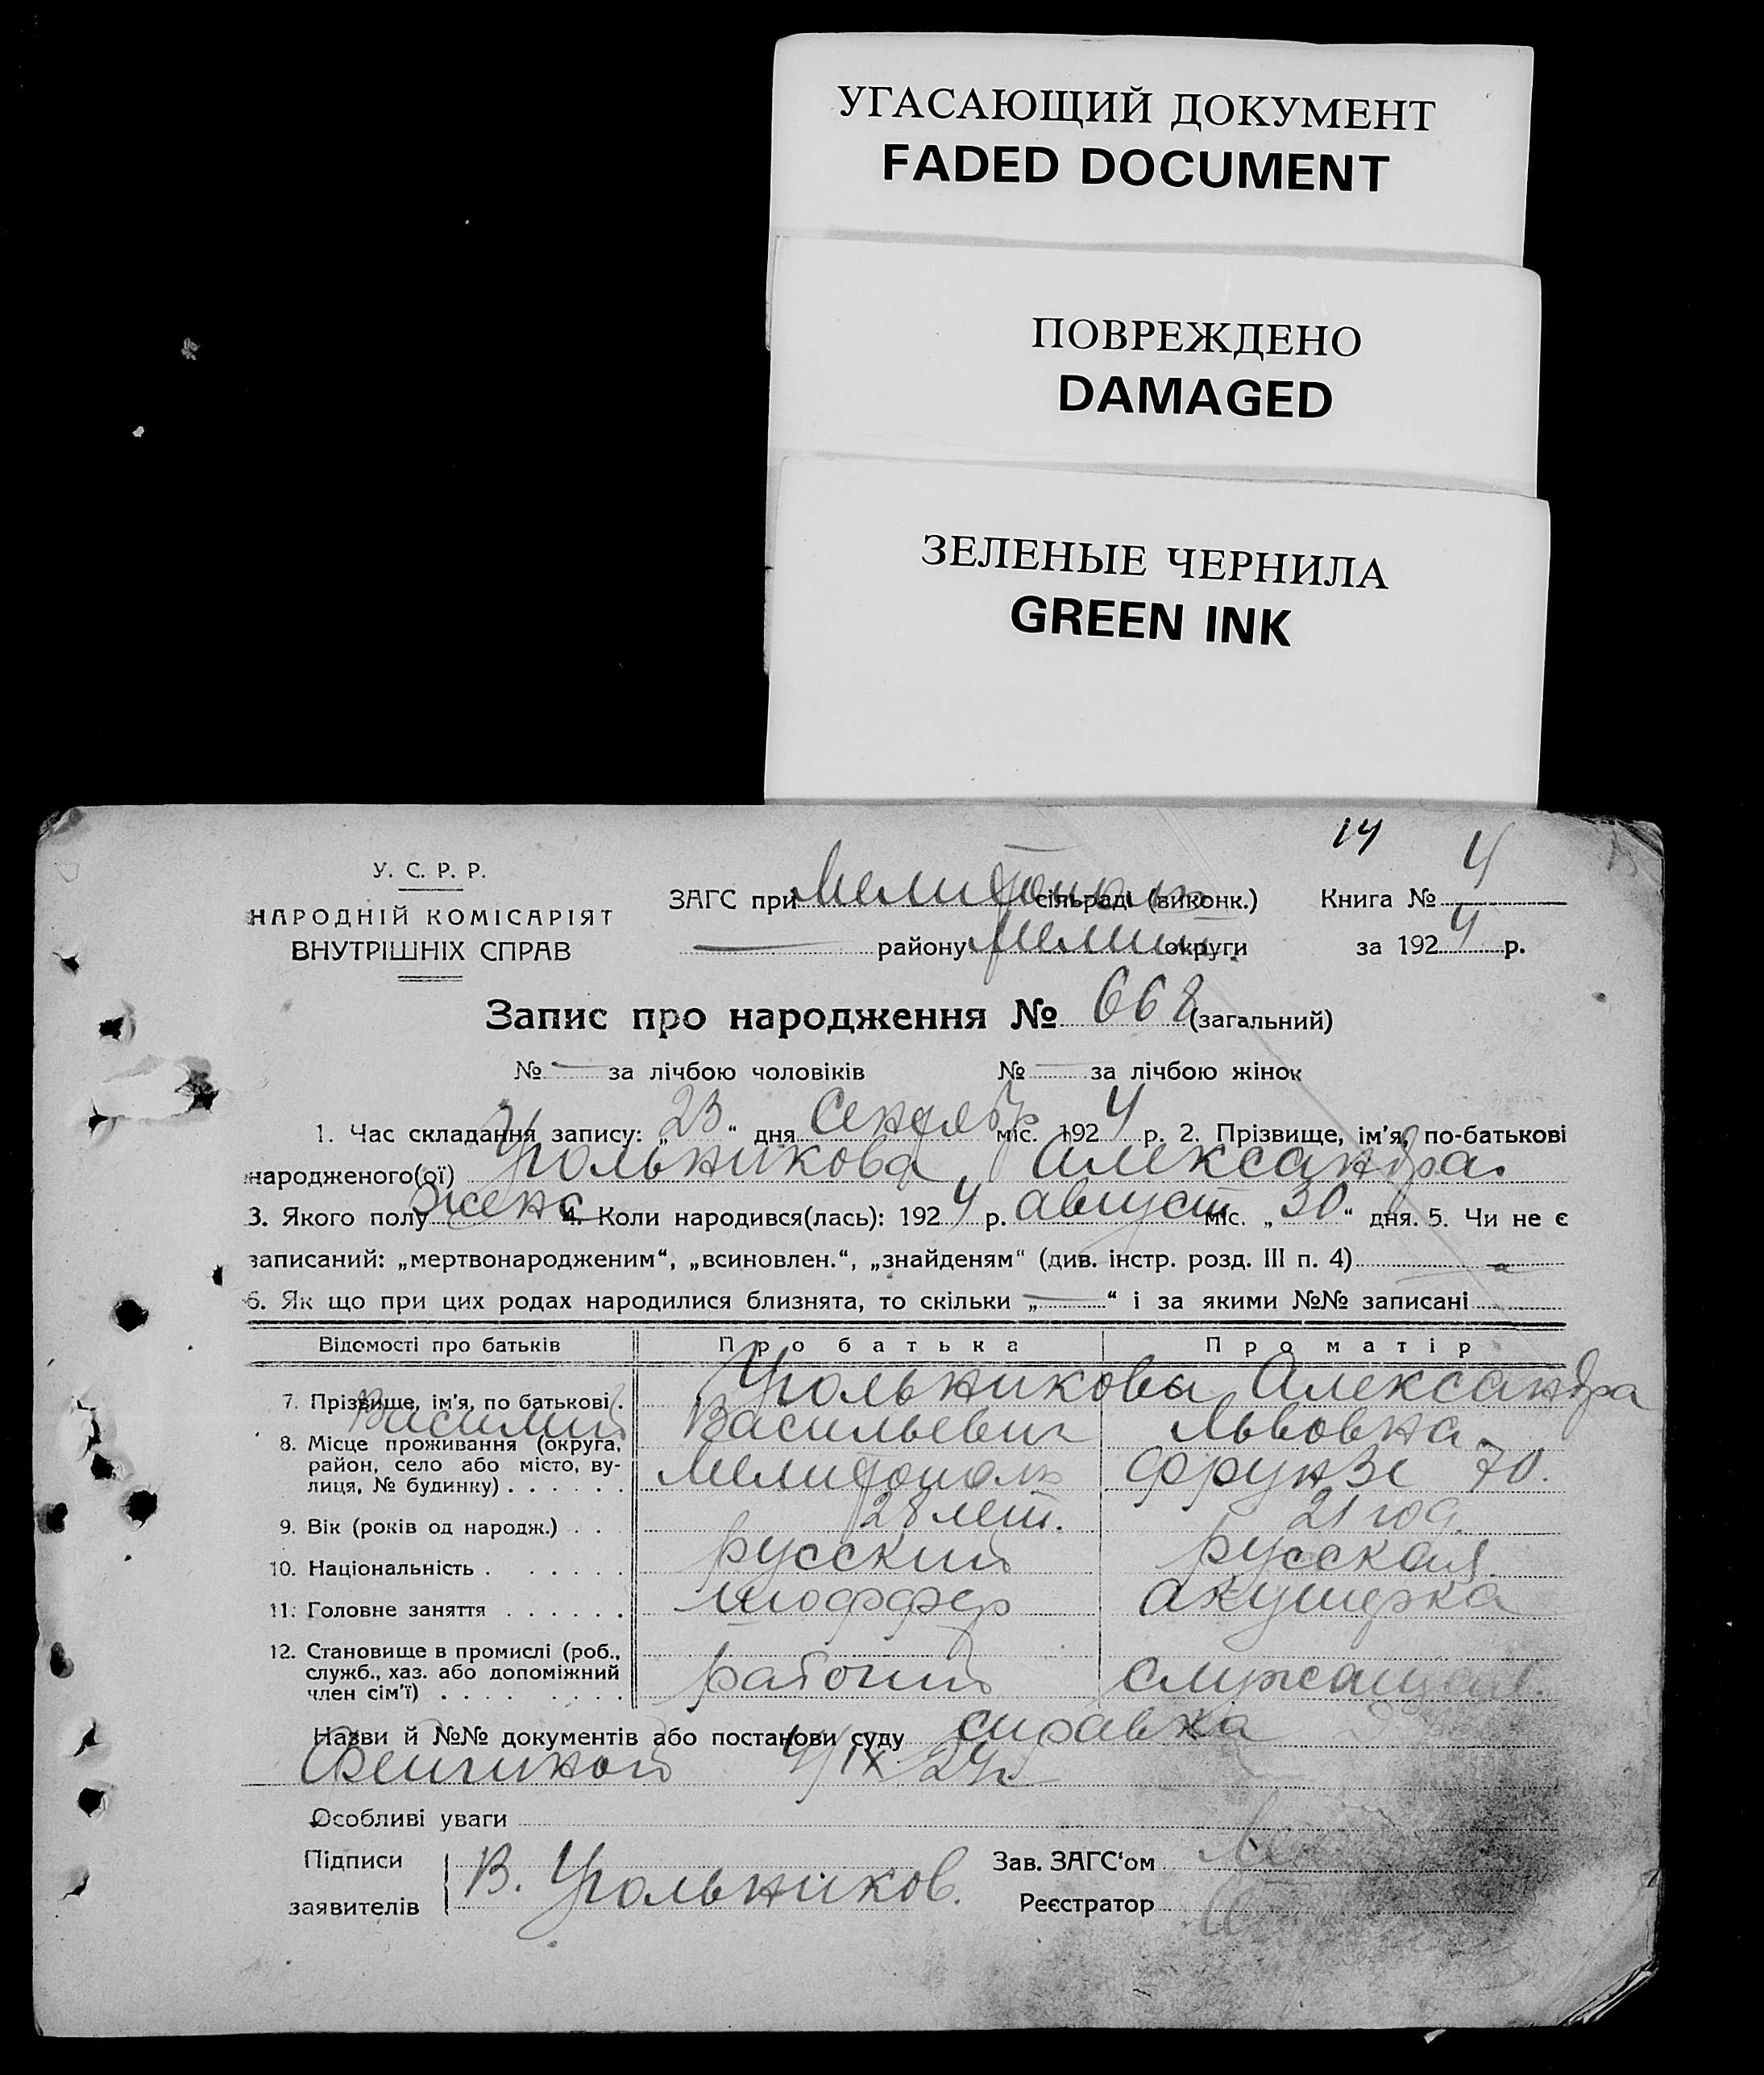 УГАСАЮЩИЙ ДОКУМЕНТ
FADED DOCUMENT
ПОВРЕЖДЕНО
DAMAGED
ЗЕЛЕНЫЕ ЧЕРНИЛА
GREEN INK
14
У. С. Р. Р.
НАРОДНІЙ КОМІСАРІЯТ
ВНУТРІШНІХ СПРАВ
ЗАГС при Мелитополь сільраді (виконк.) Книга № 4
— району Мелит. округи за 1924 р.
Запис про народження № 668 (загальний)
№ — за лічбою чоловіків № — за лічбою жінок
1. Час складання запису: „23“ дня Сентябр міс. 1924 р. 2. Прізвище, ім’я, по-батькові
народженого(ої) Угольникова Александра
3. Якого полу женс 4. Коли народився(лась): 1924 р. август міс. „30“ дня. 5. Чи не є
записаний: „мертвонародженим“, „всиновлен.“, „знайденям“ (див. інстр. розд. III п. 4)
6. Як що при цих родах народилися близнята, то скільки „—“ і за якими №№ записані
Відомості про батьків Про батька Про матір
7. Прізвище, ім’я, по батькові. Угольниковы Александра
Василий Васильевич Львовна
8. Місце проживання (округа,
район, село або місто, ву-
лиця, № будинку) Мелитополь Фрунзе 70.
9. Вік (років од народж.) 28 лет. 21 год.
10. Національність русский русская
11. Головне заняття шоффер акушерка
12. Становище в промислі (роб.,
служб., хаз. або допоміжний
член сім’ї) рабочий служащая.
Назви й №№ документів або постанови суду справка
4/IX 24г.
Особливі уваги
Підписи
заявителів В. Угольников.
Зав. ЗАГС‘ом
Реєстратор